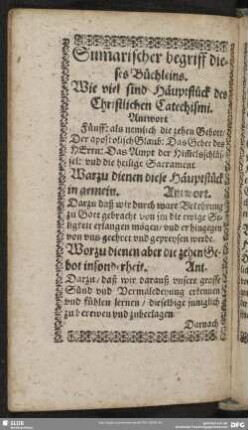 Sumarischer begriff die-
ses Büchleins.
Wie viel sind Häuptstück des
Christlichen Catechismi.
Antwort
Fünff: als nemlich die zehen Gebott/
Der apostolisch Glaub: Das Gebet des
HErrn: Das Ampt der Himelsschlüs-
sel: vnd die heilige Sacrament
Warzu dienen diese Häuptstück
in gemein. Antwort.
Darzu daß wir durch ware Bekehrung
zu Gott gebracht von jm die ewige Se-
ligkeit erlangen mögen/ vnd er hingegen
von vns geehret vnd gepreysen werde.
Worzu dienen aber die zehen Ge-
bot insonderheit. Ant-
Darzu/ daß wir darauß vnsere grosse
Sünd vnd Vermaledeyung erkennen
vnd fühlen lernen/ dieselbige inniglich
zu berewen vnd zubeklagen
Darnach